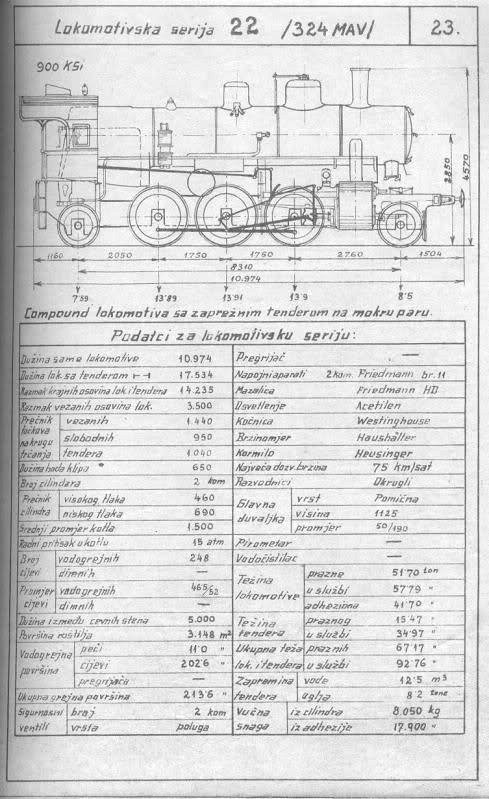 Lokomotivska serija 22 /324 MAV/ 23.
900 KSi
2850
4570
1160 2050 1750 1750 2760 1504
8310
10.974
7'59 13'89 13'91 13'9 8'5
Compound lokomotiva sa zaprežnim tenderom na mokru paru.
Podatci za lokomotivsku seriju:
Dužina same lokomotive 10.974
Dužina lok. sa tenderom 17.534
Razmak krajnjih osovina lok. i tendera 14.235
Razmak vezanih osovina lok. 3.500
Prečnik točkova na krugu trčanja
vezanih 1.440
slobodnih 950
tendera 1.040
Dužina hoda klipa 650
Broj cilindara 2 kom
Prečnik cilindra
visokog tlaka 460
niskog tlaka 690
Srednji promjer kotla 1.500
Radni pritisak u kotlu 15 atm
Broj cijevi
vodogrejnih 248
dimnih —
Promjer cijevi
vodogrejnih 46,5/52
dimnih —
Dužina između cevnih stena 5.000
Površina roštilja 3.148 m²
Vodogrejna površina
peći 11'0 "
cijevi 202'6 "
pregrijača —
Ukupna grejna površina 213'6 "
Sigurnosni ventili
broj 2 kom
vrsta poluga
Pregrijač —
Napojni aparati 2 kom. Friedmann br. 11
Mazalica Friedmann HD
Osvetlenje Acetilen
Kočnica Westinghouse
Brzinomjer Haushälter
Kormilo Heusinger
Najveća dozv. brzina 75 km/sat
Razvodnici Okrugli
Glavna duvaljka
vrst Pomična
visina 1125
promjer 50/190
Pirometar —
Vodočistilac —
Težina lokomotive
prazne 51'70 ton
u službi 57'79 "
adheziona 41'70 "
Težina tendera
praznog 15'47 "
u službi 34'97 "
Ukupna teža lok. i tendera
praznih 67'17 "
u službi 92'76 "
Zapremina tendera
vode 12'5 m³
uglja 8'2 tone
Vučna snaga
iz cilindra 8.050 kg
iz adhezije 17.900 "